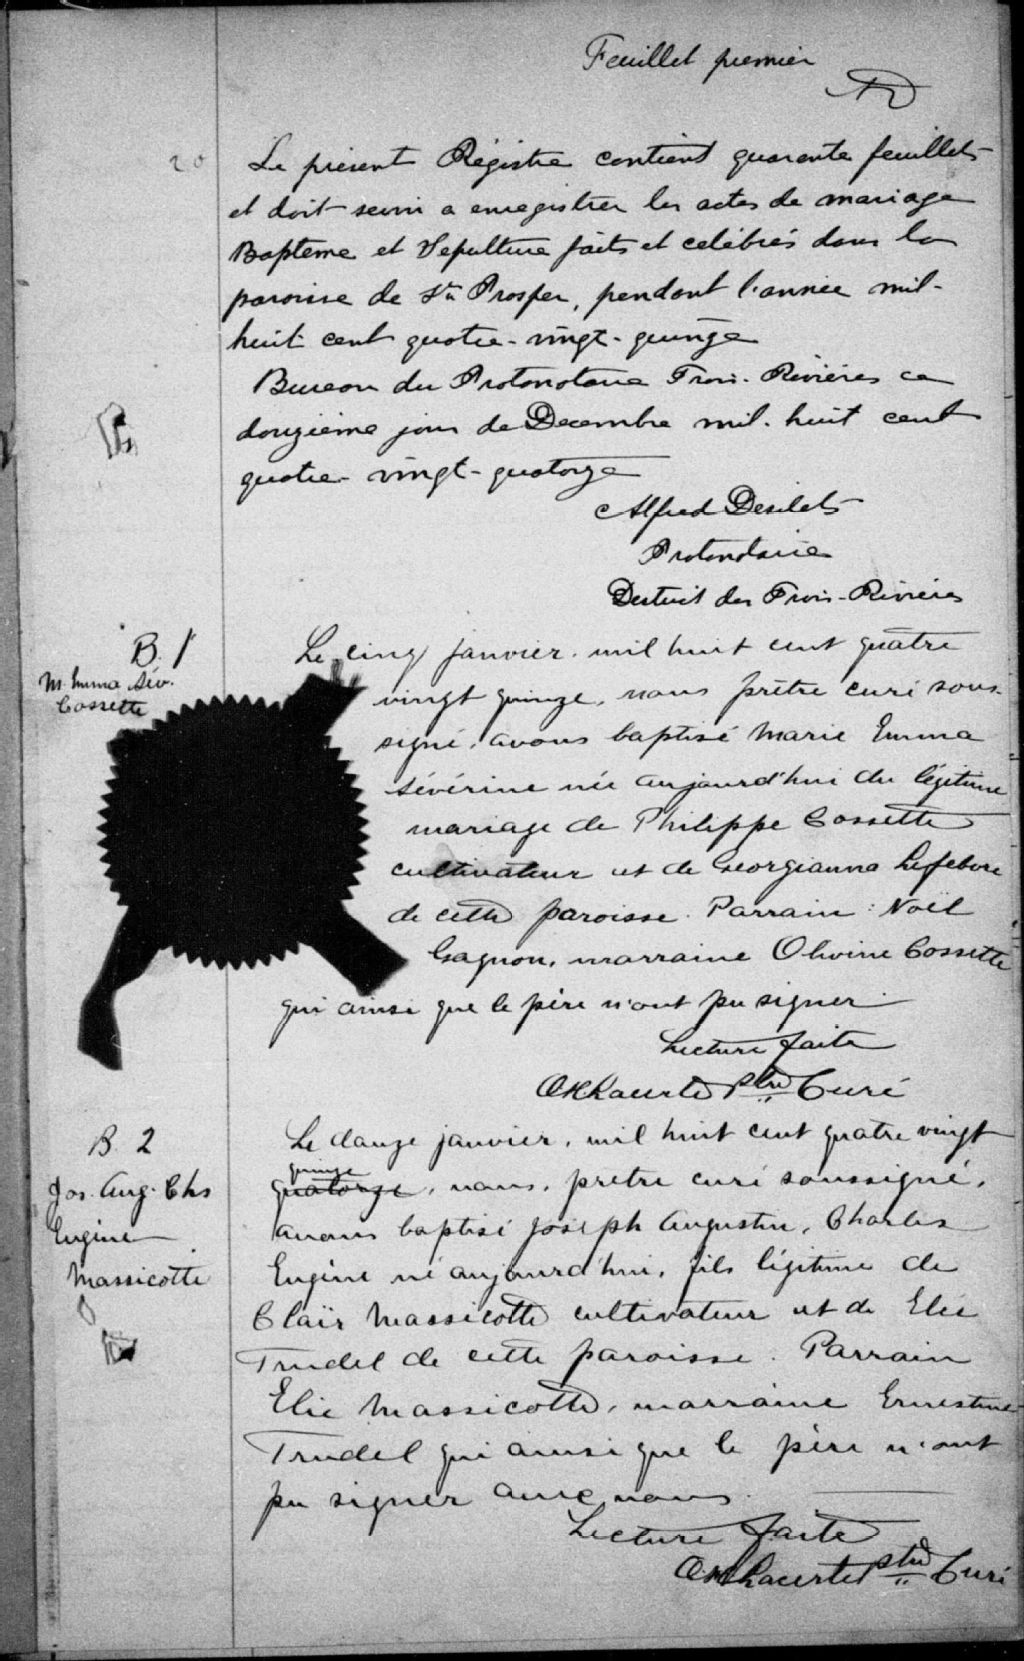 Feuillet premier
Le présent Régistre contient quarante feuillets
et doit servir a enregistrer les actes de mariage
Bapteme et Sepulture faits et célébrés dans la
paroisse de St Prosper, pendant l'année mil-
huit cent quatre-vingt-quinze
Bureau du Protonotaire Trois-Rivières ce
douzième jour de Decembre mil-huit cent
quatre-vingt-quatorze
Alfred Desilets
Protonotaire
District des Trois-Rivières
B. 1
M. Emma Sév.
Cossette
Le cinq janvier mil huit cent quatre
vingt quinze, nous prêtre curé sous-
signé, avons baptisé Marie Emma
Sévérine née aujourd'hui du légitime
mariage de Philippe Cossette
cultivateur et de Georgianna Lefebvre
de cette paroisse. Parrain: Noël
Gagnon, marraine Olivine Cossette
qui ainsi que le père n'ont pu signer
Lecture faite
Ptre Curé
B. 2
Jos. Aug. Chs
Eugène
Massicotte
Le douze janvier, mil huit cent quatre vingt
quinze
quatorze, nous, prêtre curé soussigné,
avons baptisé Joseph Augustin, Charles
Eugène né aujourd'hui, fils légitime de
Claïr Massicotte cultivateur et de Elie
Trudel de cette paroisse. Parrain
Elie Massicotte, marraine Ernestine
Trudel qui ainsi que le père n'ont
pu signer avec nous.
Lecture faite
Ptre Curé